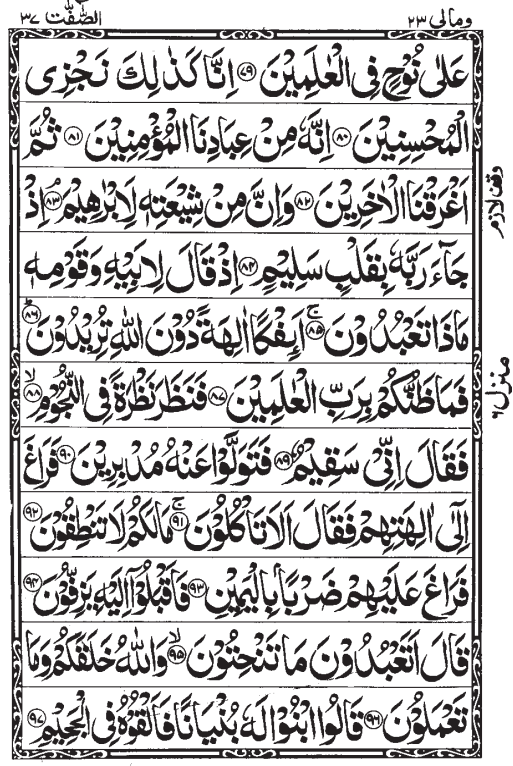 وَمَالِیَ ٢٣
الصّٰٓفّٰت ٣٧
عَلٰى نُوْحٍ فِى الْعٰلَمِيْنَ ﴿٧٩﴾ اِنَّا كَذٰلِكَ نَجْزِى
الْمُحْسِنِيْنَ ﴿٨٠﴾ اِنَّهٗ مِنْ عِبَادِنَا الْمُؤْمِنِيْنَ ﴿٨١﴾ ثُمَّ
اَغْرَقْنَا الْاٰخَرِيْنَ ﴿٨٢﴾ وَاِنَّ مِنْ شِيْعَتِهٖ لَاِبْرٰهِيْمَ ۘ﴿٨٣﴾ اِذْ
جَآءَ رَبَّهٗ بِقَلْبٍ سَلِيْمٍ ﴿٨٤﴾ اِذْ قَالَ لِاَبِيْهِ وَقَوْمِهٖ
مَاذَا تَعْبُدُوْنَ ۚ﴿٨٥﴾ اَئِفْكًا اٰلِهَةً دُوْنَ اللّٰهِ تُرِيْدُوْنَ ؕ﴿٨٦﴾
فَمَا ظَنُّكُمْ بِرَبِّ الْعٰلَمِيْنَ ﴿٨٧﴾ فَنَظَرَ نَظْرَةً فِى النُّجُوْمِ ۙ﴿٨٨﴾
فَقَالَ اِنِّىْ سَقِيْمٌ ﴿٨٩﴾ فَتَوَلَّوْا عَنْهُ مُدْبِرِيْنَ ﴿٩٠﴾ فَرَاغَ
اِلٰٓى اٰلِهَتِهِمْ فَقَالَ اَلَا تَاْكُلُوْنَ ۚ﴿٩١﴾ مَا لَكُمْ لَا تَنْطِقُوْنَ ﴿٩٢﴾
فَرَاغَ عَلَيْهِمْ ضَرْبًۢا بِالْيَمِيْنِ ﴿٩٣﴾ فَاَقْبَلُوْٓا اِلَيْهِ يَزِفُّوْنَ ﴿٩٤﴾
قَالَ اَتَعْبُدُوْنَ مَا تَنْحِتُوْنَ ۙ﴿٩٥﴾ وَاللّٰهُ خَلَقَكُمْ وَمَا
تَعْمَلُوْنَ ﴿٩٦﴾ قَالُوا ابْنُوْا لَهٗ بُنْيَانًا فَاَلْقُوْهُ فِى الْجَحِيْمِ ﴿٩٧﴾
وقف لازم
منزل ٦